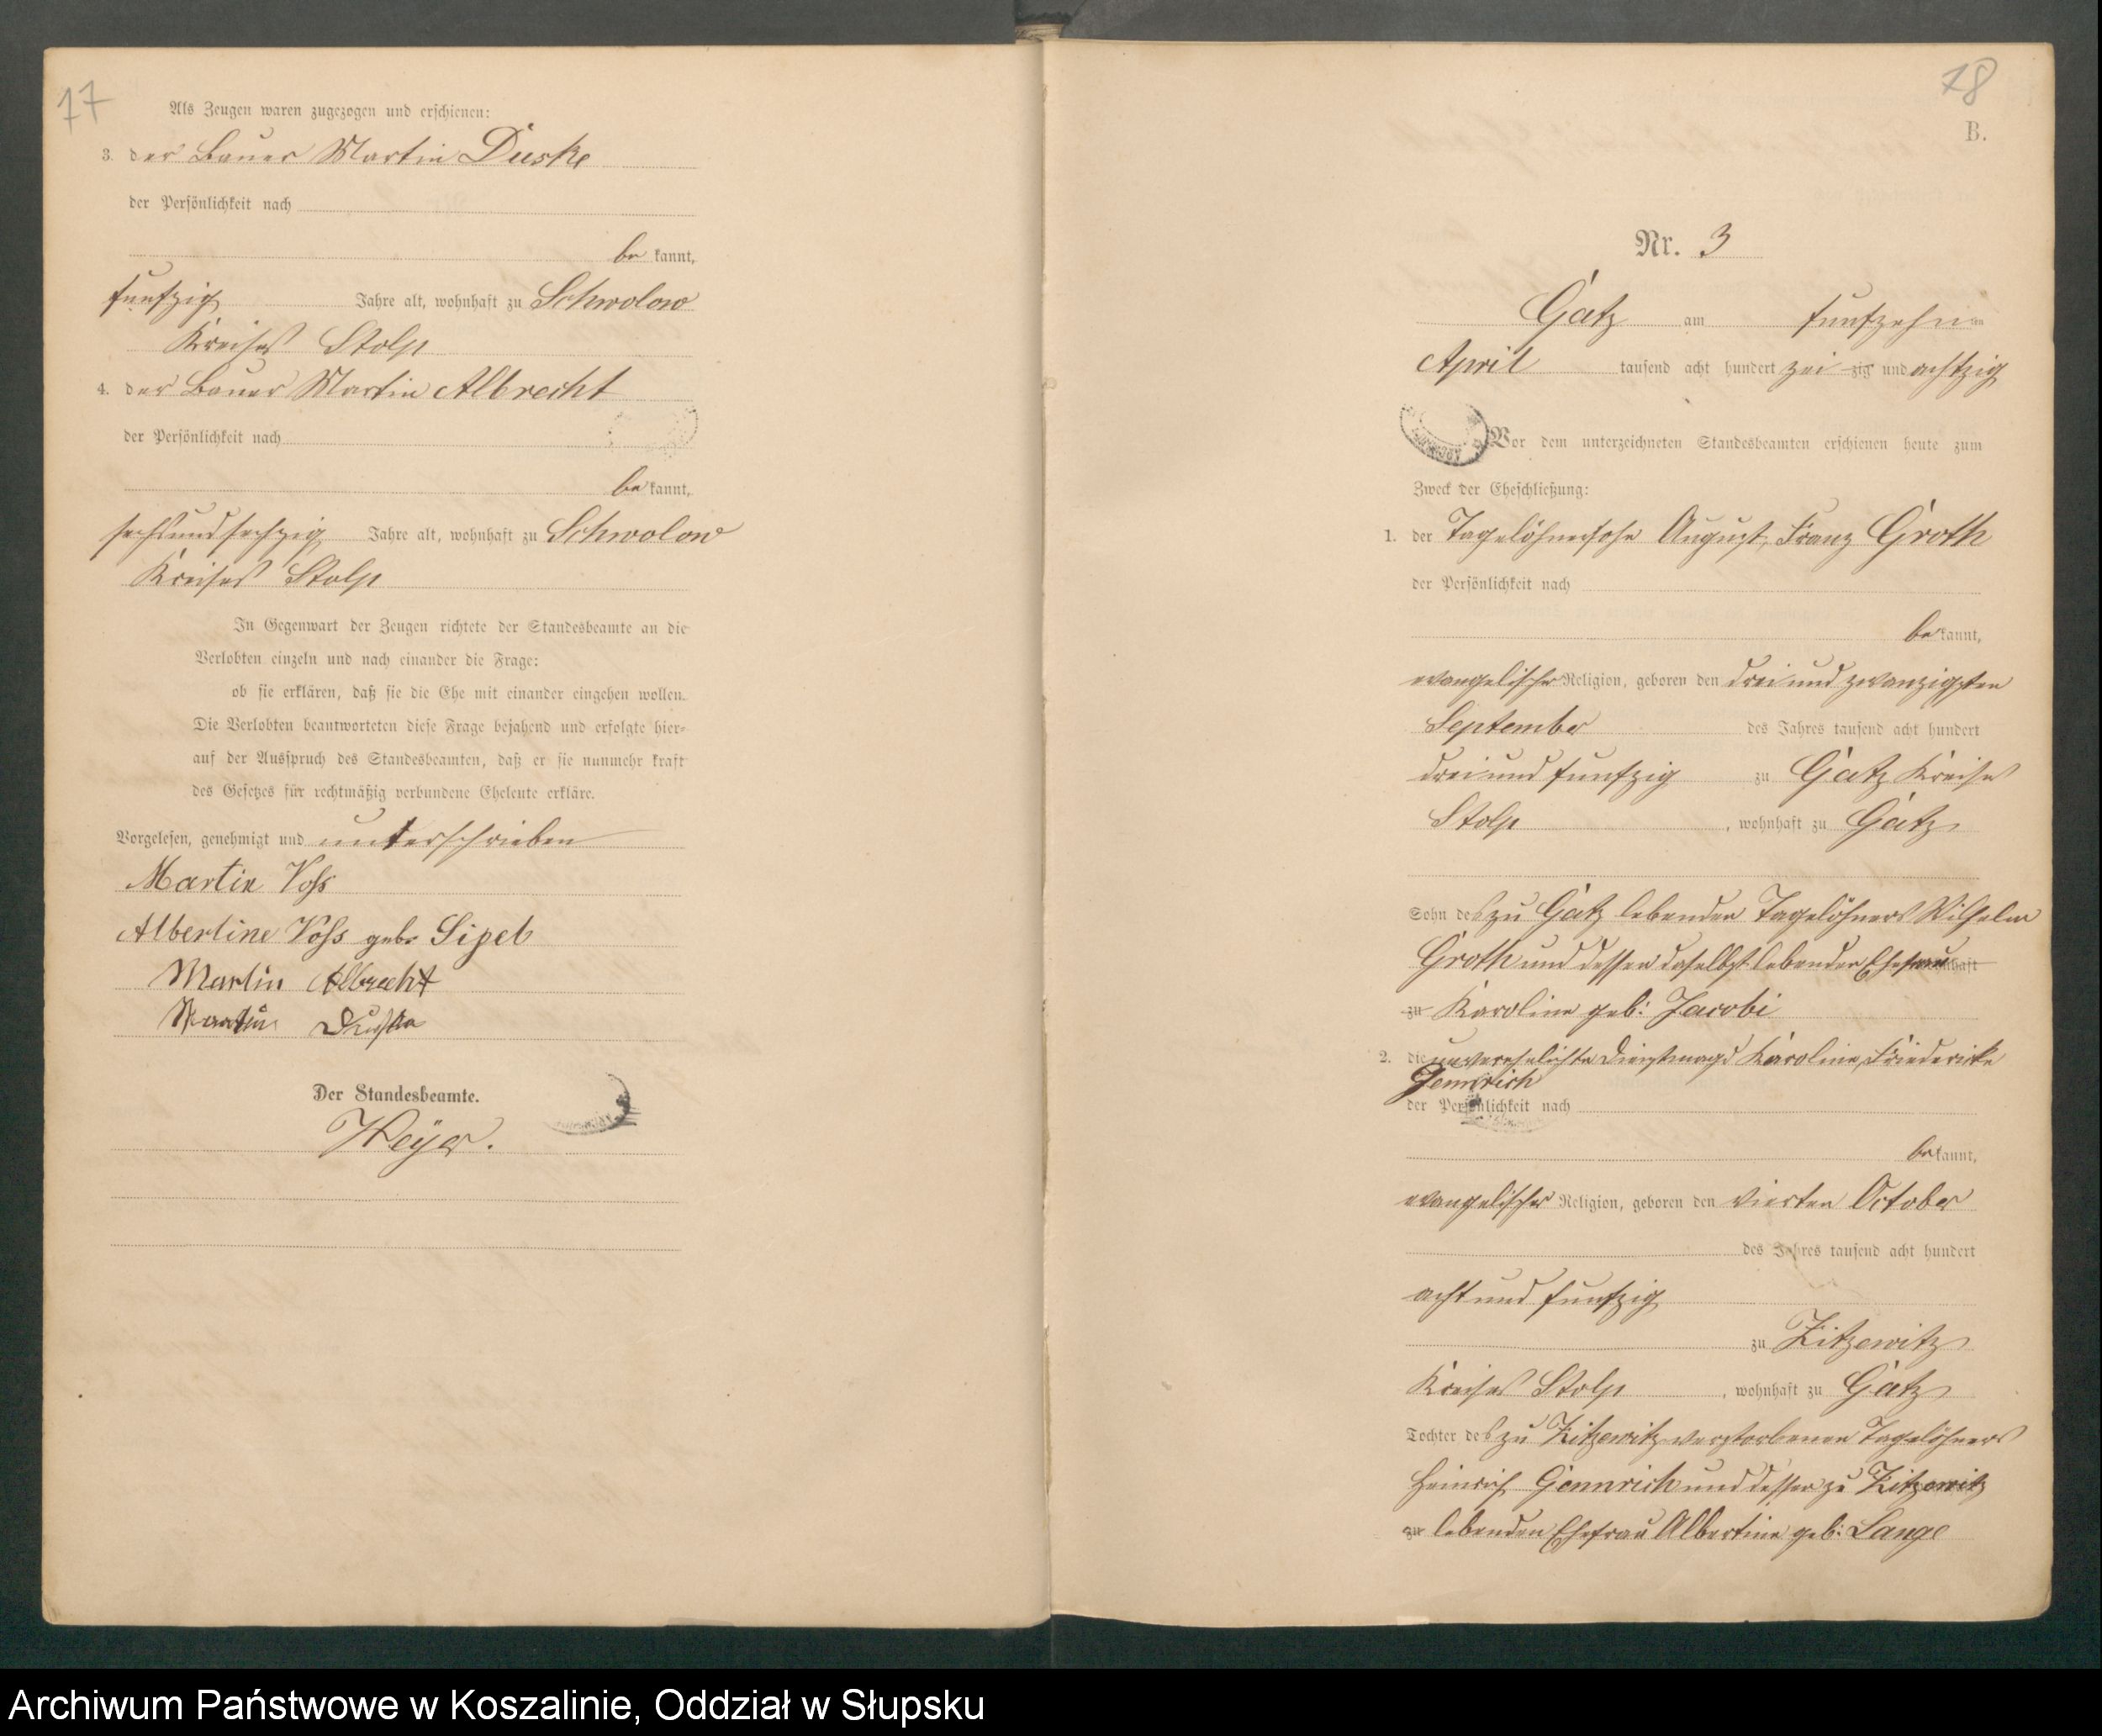 17
Als Zeugen waren zugezogen und erschienen:
3. der Bauer Martin Duske
der Persönlichkeit nach
be kannt,
funfzig Jahre alt, wohnhaft zu Schwolow
Kreises Stolp
4. der Bauer Martin Albrecht
der Persönlichkeit nach
be kannt,
sechsundsechzig Jahre alt, wohnhaft zu Schwolow
Kreises Stolp
In Gegenwart der Zeugen richtete der Standesbeamte an die
Verlobten einzeln und nach einander die Frage:
ob sie erklären, daß sie die Ehe mit einander eingehen wollen.
Die Verlobten beantworteten diese Frage bejahend und erfolgte hier-
auf der Ausspruch des Standesbeamten, daß er sie nunmehr kraft
des Gesetzes für rechtmäßig verbundene Eheleute erkläre.
Vorgelesen, genehmigt und unterschrieben
Martin Voß
Albertine Voß geb. Sipel
Martin Albrecht
Martin Duska
Der Standesbeamte.
Weÿer.
18
B.
Nr. 3
Gatz am funfzehn ten
April tausend acht hundert zwei zig und achtzig
Vor dem unterzeichneten Standesbeamten erschienen heute zum
Zweck der Eheschließung:
1. der Tagelöhnersohn August, Franz Groth
der Persönlichkeit nach
be kannt,
evangelischer Religion, geboren den drei und zwanzigsten
September des Jahres tausend acht hundert
drei und funfzig zu Gatz Kreises
Stolp, wohnhaft zu Gatz
Sohn des zu Gatz lebenden Tagelöhners Wilhelm
Groth und dessen daselbst lebenden Ehefrau
zu Karoline geb: Jacobi
2. die unverehelichte Dienstmagd Karoline, Friedericke
Gennrich
der Persönlichkeit nach
be kannt,
evangelischer Religion, geboren den vierten October
des Jahres tausend acht hundert
acht und funfzig
zu Zitzewitz
Kreises Stolp, wohnhaft zu Gatz
Tochter des zu Zitzewitz verstorbenen Tagelöhners
Heinrich Gennrich und dessen zu Zitzewitz
zu lebenden Ehefrau Albertine geb: Lange
Archiwum Państwowe w Koszalinie, Oddział w Słupsku